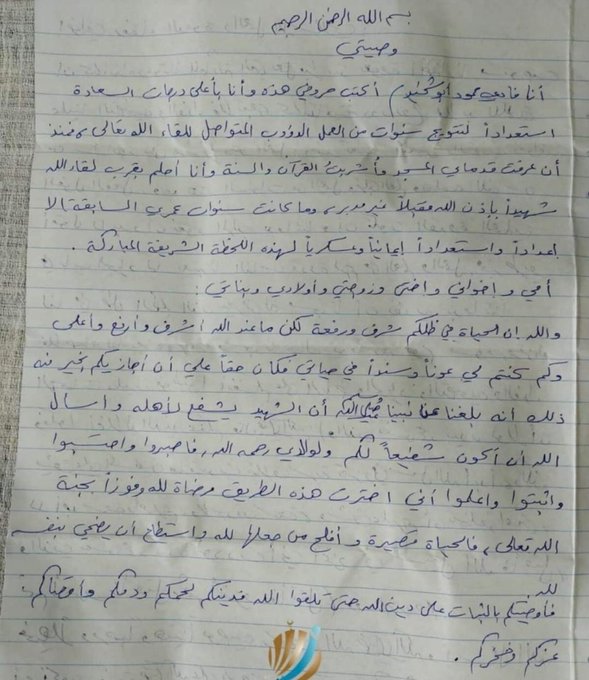 بسم الله الرحمن الرحيم
وصيتي
أنا فادي محمود أبو شخيدم أكتب حروفي هذه وأنا بأعلى درجات السعادة
استعداداً لتتويج سنوات من العمل الدؤوب المتواصل للقاء الله تعالى، فمنذ
أن عرفت قدماي المسجد وأُشربت القرآن والسنة وأنا أحلم بقرب لقاء الله
شهيداً بإذن الله مقبلاً غير مدبر، وما كانت سنوات عمري السابقة إلا
إعداداً واستعداداً إيمانياً وعسكرياً لهذه اللحظة الشريفة المباركة.
أمي وإخواني وأختي وزوجتي وأولادي وبناتي:
والله إن الحياة في ظلكم شرف ورفعة لكن ما عند الله أشرف وأرفع وأعلى
وكم كنتم لي عوناً وسنداً في حياتي فكان حقاً علي أن أجازيكم الخير منه
ذلك أنه بلغنا عن نبينا أن الشهيد يشفع لأهله وأسأل
الله أن أكون شفيعاً لكم ولولدي رحمه الله، فاصبروا واحتسبوا
واثبتوا واعلموا أني اخترت هذه الطريق مرضاة لله وفوزاً بجنة
الله تعالى، فالحياة قصيرة وأفلح من جعلها لله واستطاع أن يضحي بنفسه
لله
فأوصيكم بالثبات على دين الله حتى تلقوا الله فدينكم لحمكم ودمكم
عزكم وفخركم.